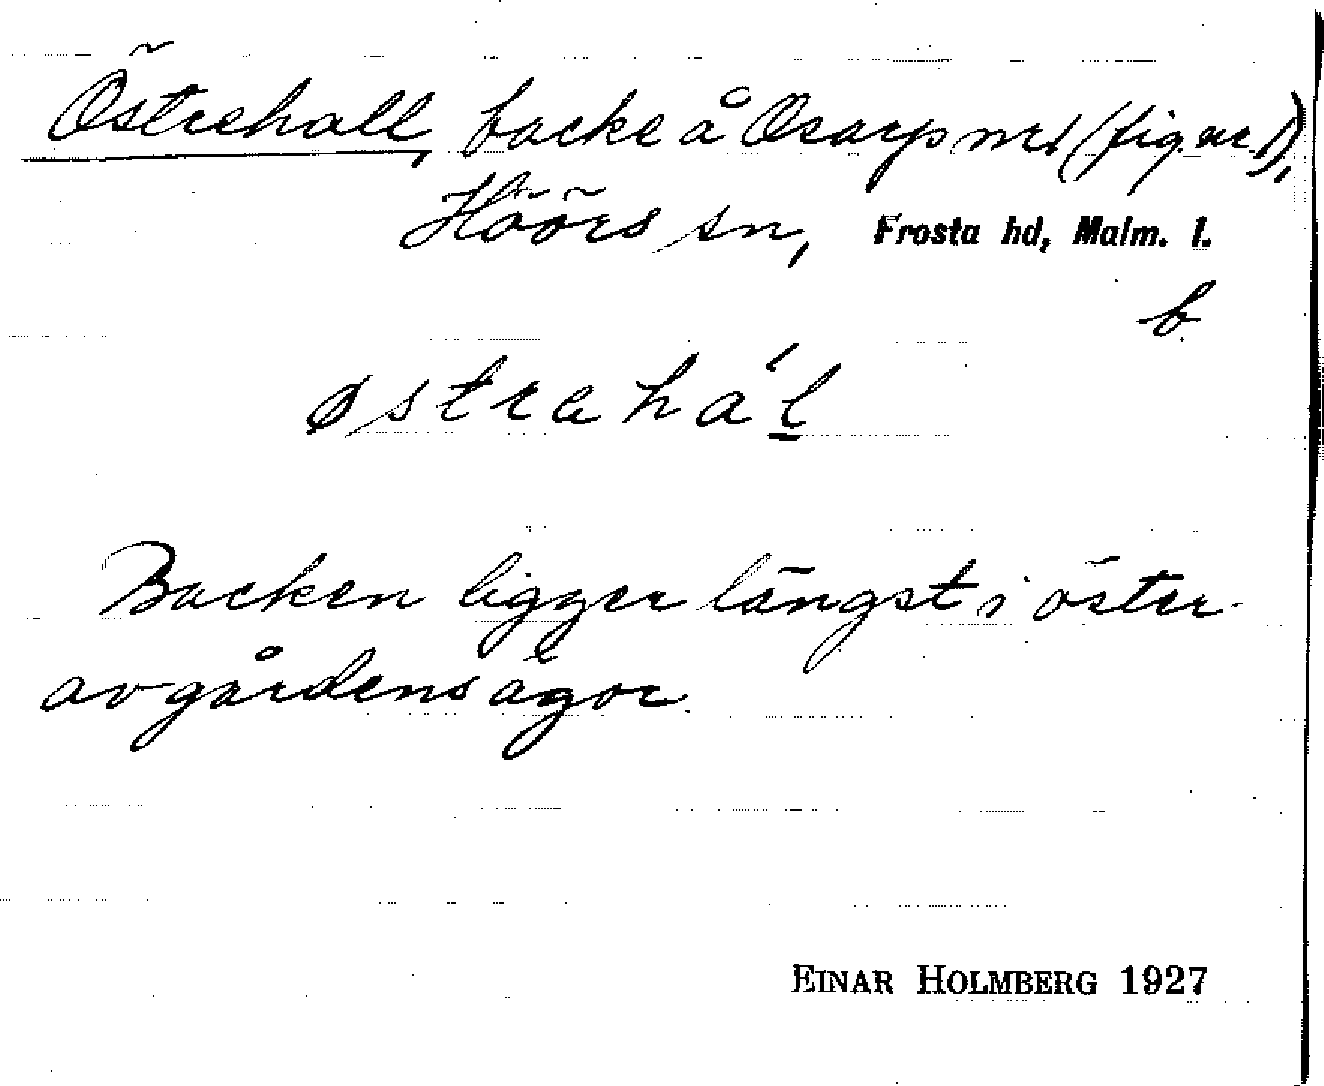 Östrehall, backe å Osarps nr 1 (fig. nr 1),
Höörs sn, Frosta hd, Malm. l.
b.
østrahál
Backen ligger längst i öster
av gårdens ägor.
EINAR HOLMBERG 1927